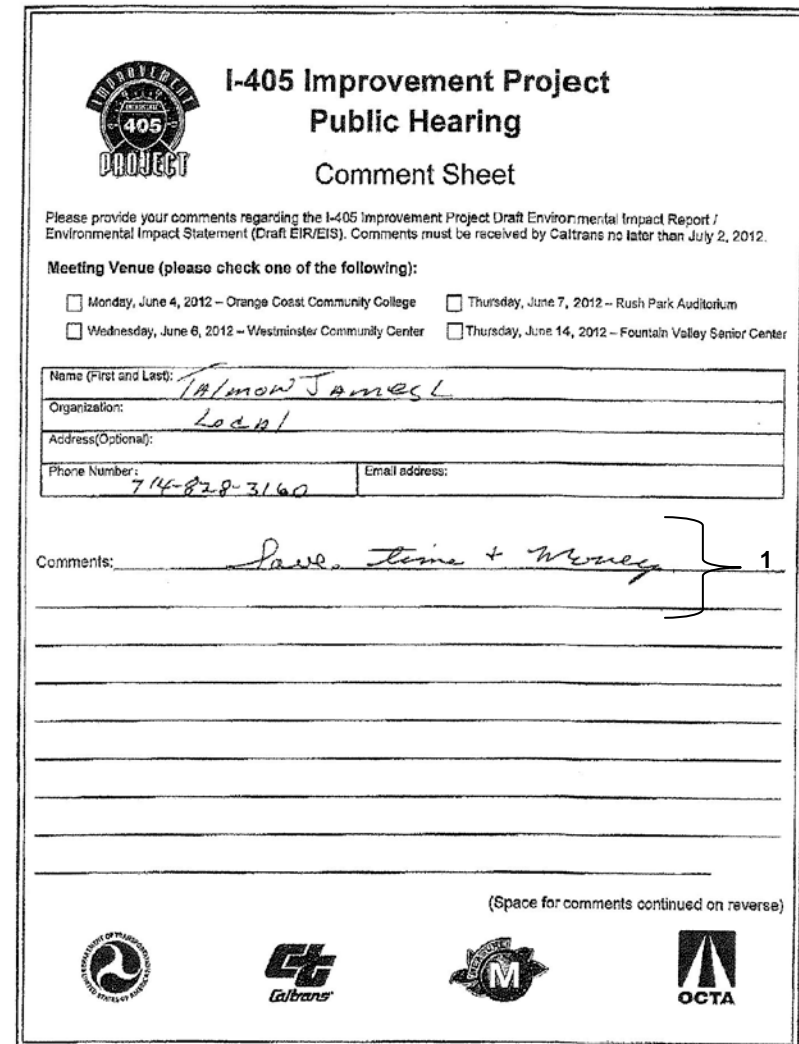 IMPROVEMENT
405
PROJECT
I-405 Improvement Project
Public Hearing
Comment Sheet
Please provide your comments regarding the I-405 Improvement Project Draft Environmental Impact Report /
Environmental Impact Statement (Draft EIR/EIS). Comments must be received by Caltrans no later than July 2, 2012.
Meeting Venue (please check one of the following):
Monday, June 4, 2012 – Orange Coast Community College
Thursday, June 7, 2012 – Rush Park Auditorium
Wednesday, June 6, 2012 – Westminster Community Center
Thursday, June 14, 2012 – Fountain Valley Senior Center
Name (First and Last): Talmon James L
Organization: Local
Address(Optional):
Phone Number: 714-828-3160
Email address:
Comments: Save time + Money
1
(Space for comments continued on reverse)
DEPARTMENT OF TRANSPORTATION
UNITED STATES OF AMERICA
Caltrans
MEASURE
M
OCTA